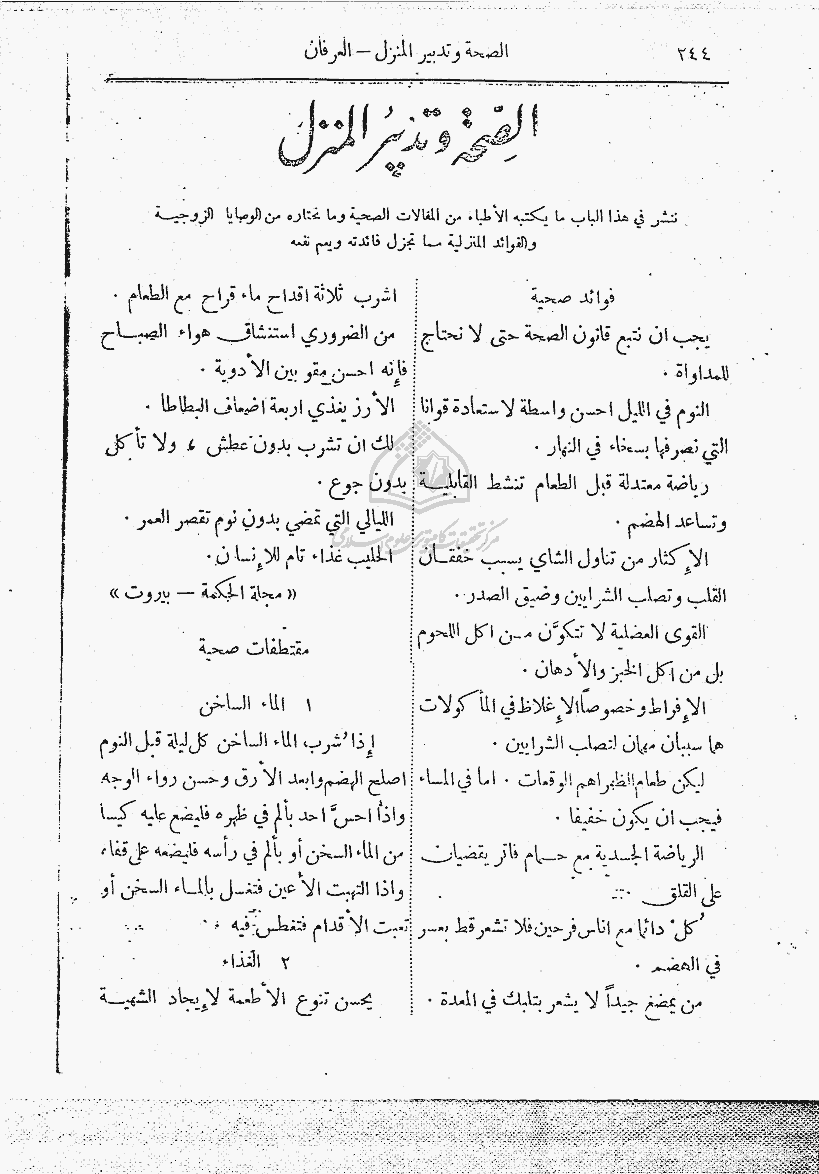 ٢٤٤
الصحة وتدبير المنزل – العرفان
الصحة وتدبير المنزل
ننشر في هذا الباب ما يكتبه الأطباء من المقالات الصحية وما نختاره من الوصايا الزوجية
والفوائد المنزلية مما تجزل فائدته ويعم نفعه
فوائد صحية
يجب ان نتبع قانون الصحة حتى لا نحتاج
للمداواة ٠
النوم في الليل احسن واسطة لاستعادة قوانا
التي نصرفها بسخاء في النهار ٠
رياضة معتدلة قبل الطعام تنشط القابلية
وتساعد الهضم ٠
الإكثار من تناول الشاي يسبب خفقان
القلب وتصلب الشرايين وضيق الصدر ٠
القوى العضلية لا تتكوَّن من اكل اللحوم
بل من اكل الخبز والأدهان ٠
الإفراط وخصوصاً الإغلاظ في المأكولات
هما سببان مهمان لتصلب الشرايين ٠
ليكن طعام الظهر اهم الوقعات ٠ اما في المساء
فيجب ان يكون خفيفا ٠
الرياضة الجسدية مع حمام فاتر يقضيان
على القلق ٠
كُل دائما مع اناس فرحين فلا تشعر قط بعسر
في الهضم ٠
من يمضغ جيداً لا يشعر بتلبك في المعدة ٠
اشرب ثلاثة اقداح ماء قراح مع الطعام ٠
من الضروري استنشاق هواء الصباح
فإنه احسن مقو بين الأدوية ٠
الأرز يغذي اربعة اضعاف البطاطا ٠
لك ان تشرب بدون عطش ، ولا تأكل
بدون جوع ٠
الليالي التي تمضي بدون نوم تقصر العمر ٠
الحليب غذاء تام للإنسان ٠
« مجلة الحكمة – بيروت »
مقتطفات صحية
١ الماء الساخن
إذا شُرب الماء الساخن كل ليلة قبل النوم
اصلح الهضم وابعد الأرق وحسن رواء الوجه
واذا احسَّ احد بألم في ظهره فليضع عليه كيسا
من الماء السخن أو بألم في رأسه فليضعه على قفاه
واذا التهبت الأعين فتغسل بالماء السخن أو
تعبت الأقدام فتغطس فيه ٠
٢ الغذاء
يحسن تنوع الأطعمة لإيجاد الشهية